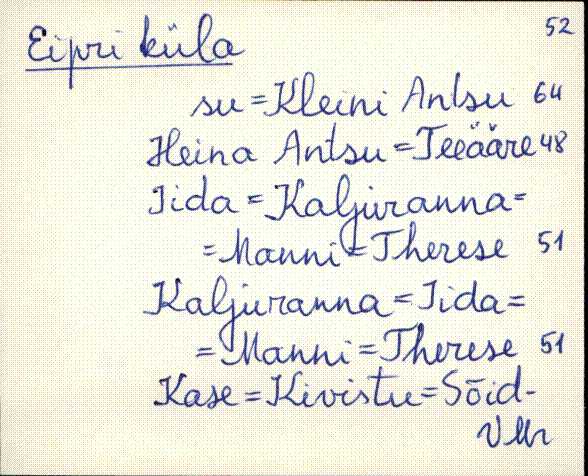 52
Eipri küla
su = Kleini Antsu 64
Heina Antsu = Teeääre 48
Iida = Kaljuranna =
= Manni = Therese 51
Kaljuranna = Iida =
= Manni = Therese 51
Kase = Kivistu = Sõid-